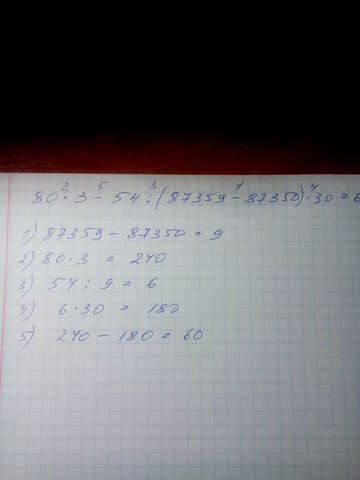 80 · 3 - 54 : (87359 - 87350) · 30 = 6
1) 87359 - 87350 = 9
2) 80 · 3 = 240
3) 54 : 9 = 6
4) 6 · 30 = 180
5) 240 - 180 = 60